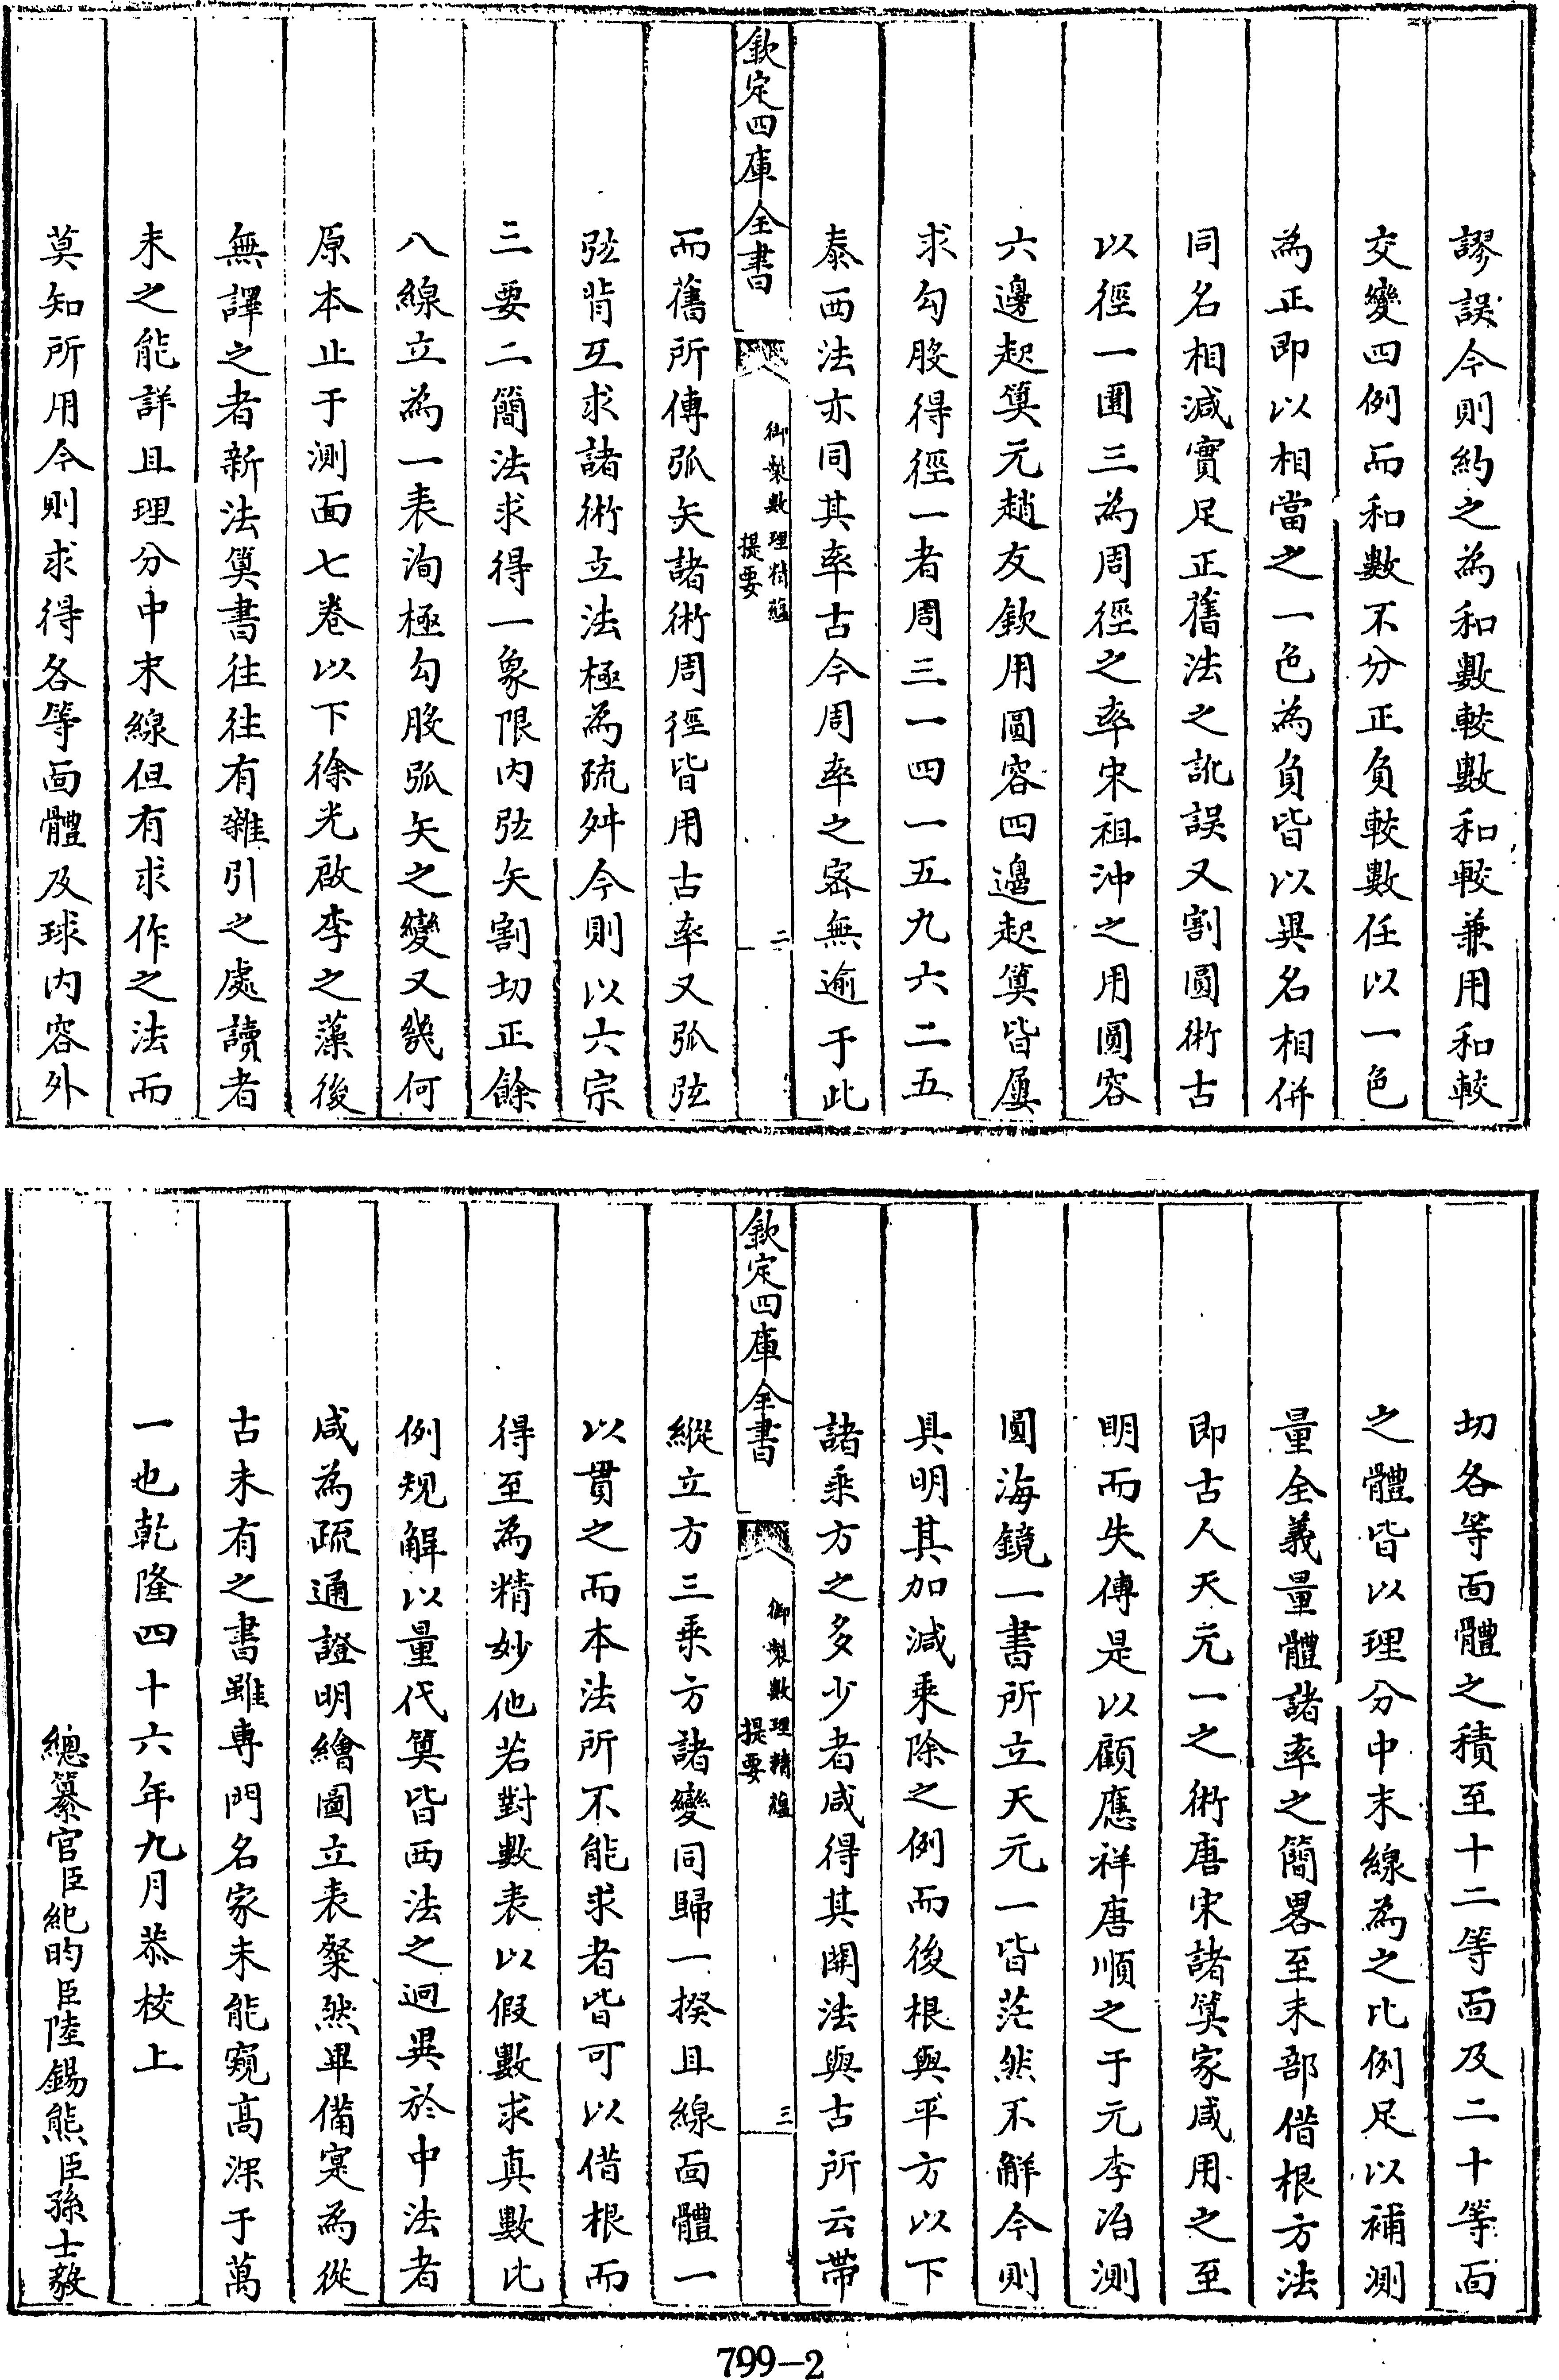 謬誤今則約之為和數較數和較兼用和較
交變四例而和數不分正負較數任以一色
為正即以相當之一色為負皆以異名相併
同名相減實足正舊法之訛誤又割圓術古
以徑一圍三為周徑之率宋祖沖之用圓容
六邊起算元趙友欽用圓容四邊起算皆屢
求勾股得徑一者周三一四一五九六二五
泰西法亦同其率古今周率之密無逾于此
欽定四庫全書
御製數理精蘊
提要
二
而舊所傳弧矢諸術周徑皆用古率又弧弦
弦背互求諸術立法極為疏舛今則以六宗
三要二簡法求得一象限内弦矢割切正餘
八線立為一表洵極勾股弧矢之變又幾何
原本止于測面七卷以下徐光啟李之藻後
無譯之者新法算書往往有雜引之處讀者
未之能詳且理分中末線但有求作之法而
莫知所用今則求得各等面體及球内容外
切各等面體之積至十二等面及二十等面
之體皆以理分中末線為之比例足以補測
量全義量體諸率之簡畧至末部借根方法
即古人天元一之術唐宋諸算家咸用之至
明而失傳是以顧應祥唐順之于元李冶測
圓海鏡一書所立天元一皆茫然不解今則
具明其加減乘除之例而後根與平方以下
諸乘方之多少者咸得其開法與古所云帶
欽定四庫全書
御製數理精蘊
提要
三
縱立方三乘方諸變同歸一揆且線面體一
以貫之而本法所不能求者皆可以借根而
得至為精妙他若對數表以假數求真數比
例規解以量代算皆西法之迥異於中法者
咸為疏通證明繪圖立表粲然畢備寔為從
古未有之書雖專門名家未能窺高深于萬
一也乾隆四十六年九月恭校上
總纂官臣紀昀臣陸錫熊臣孫士毅
799-2